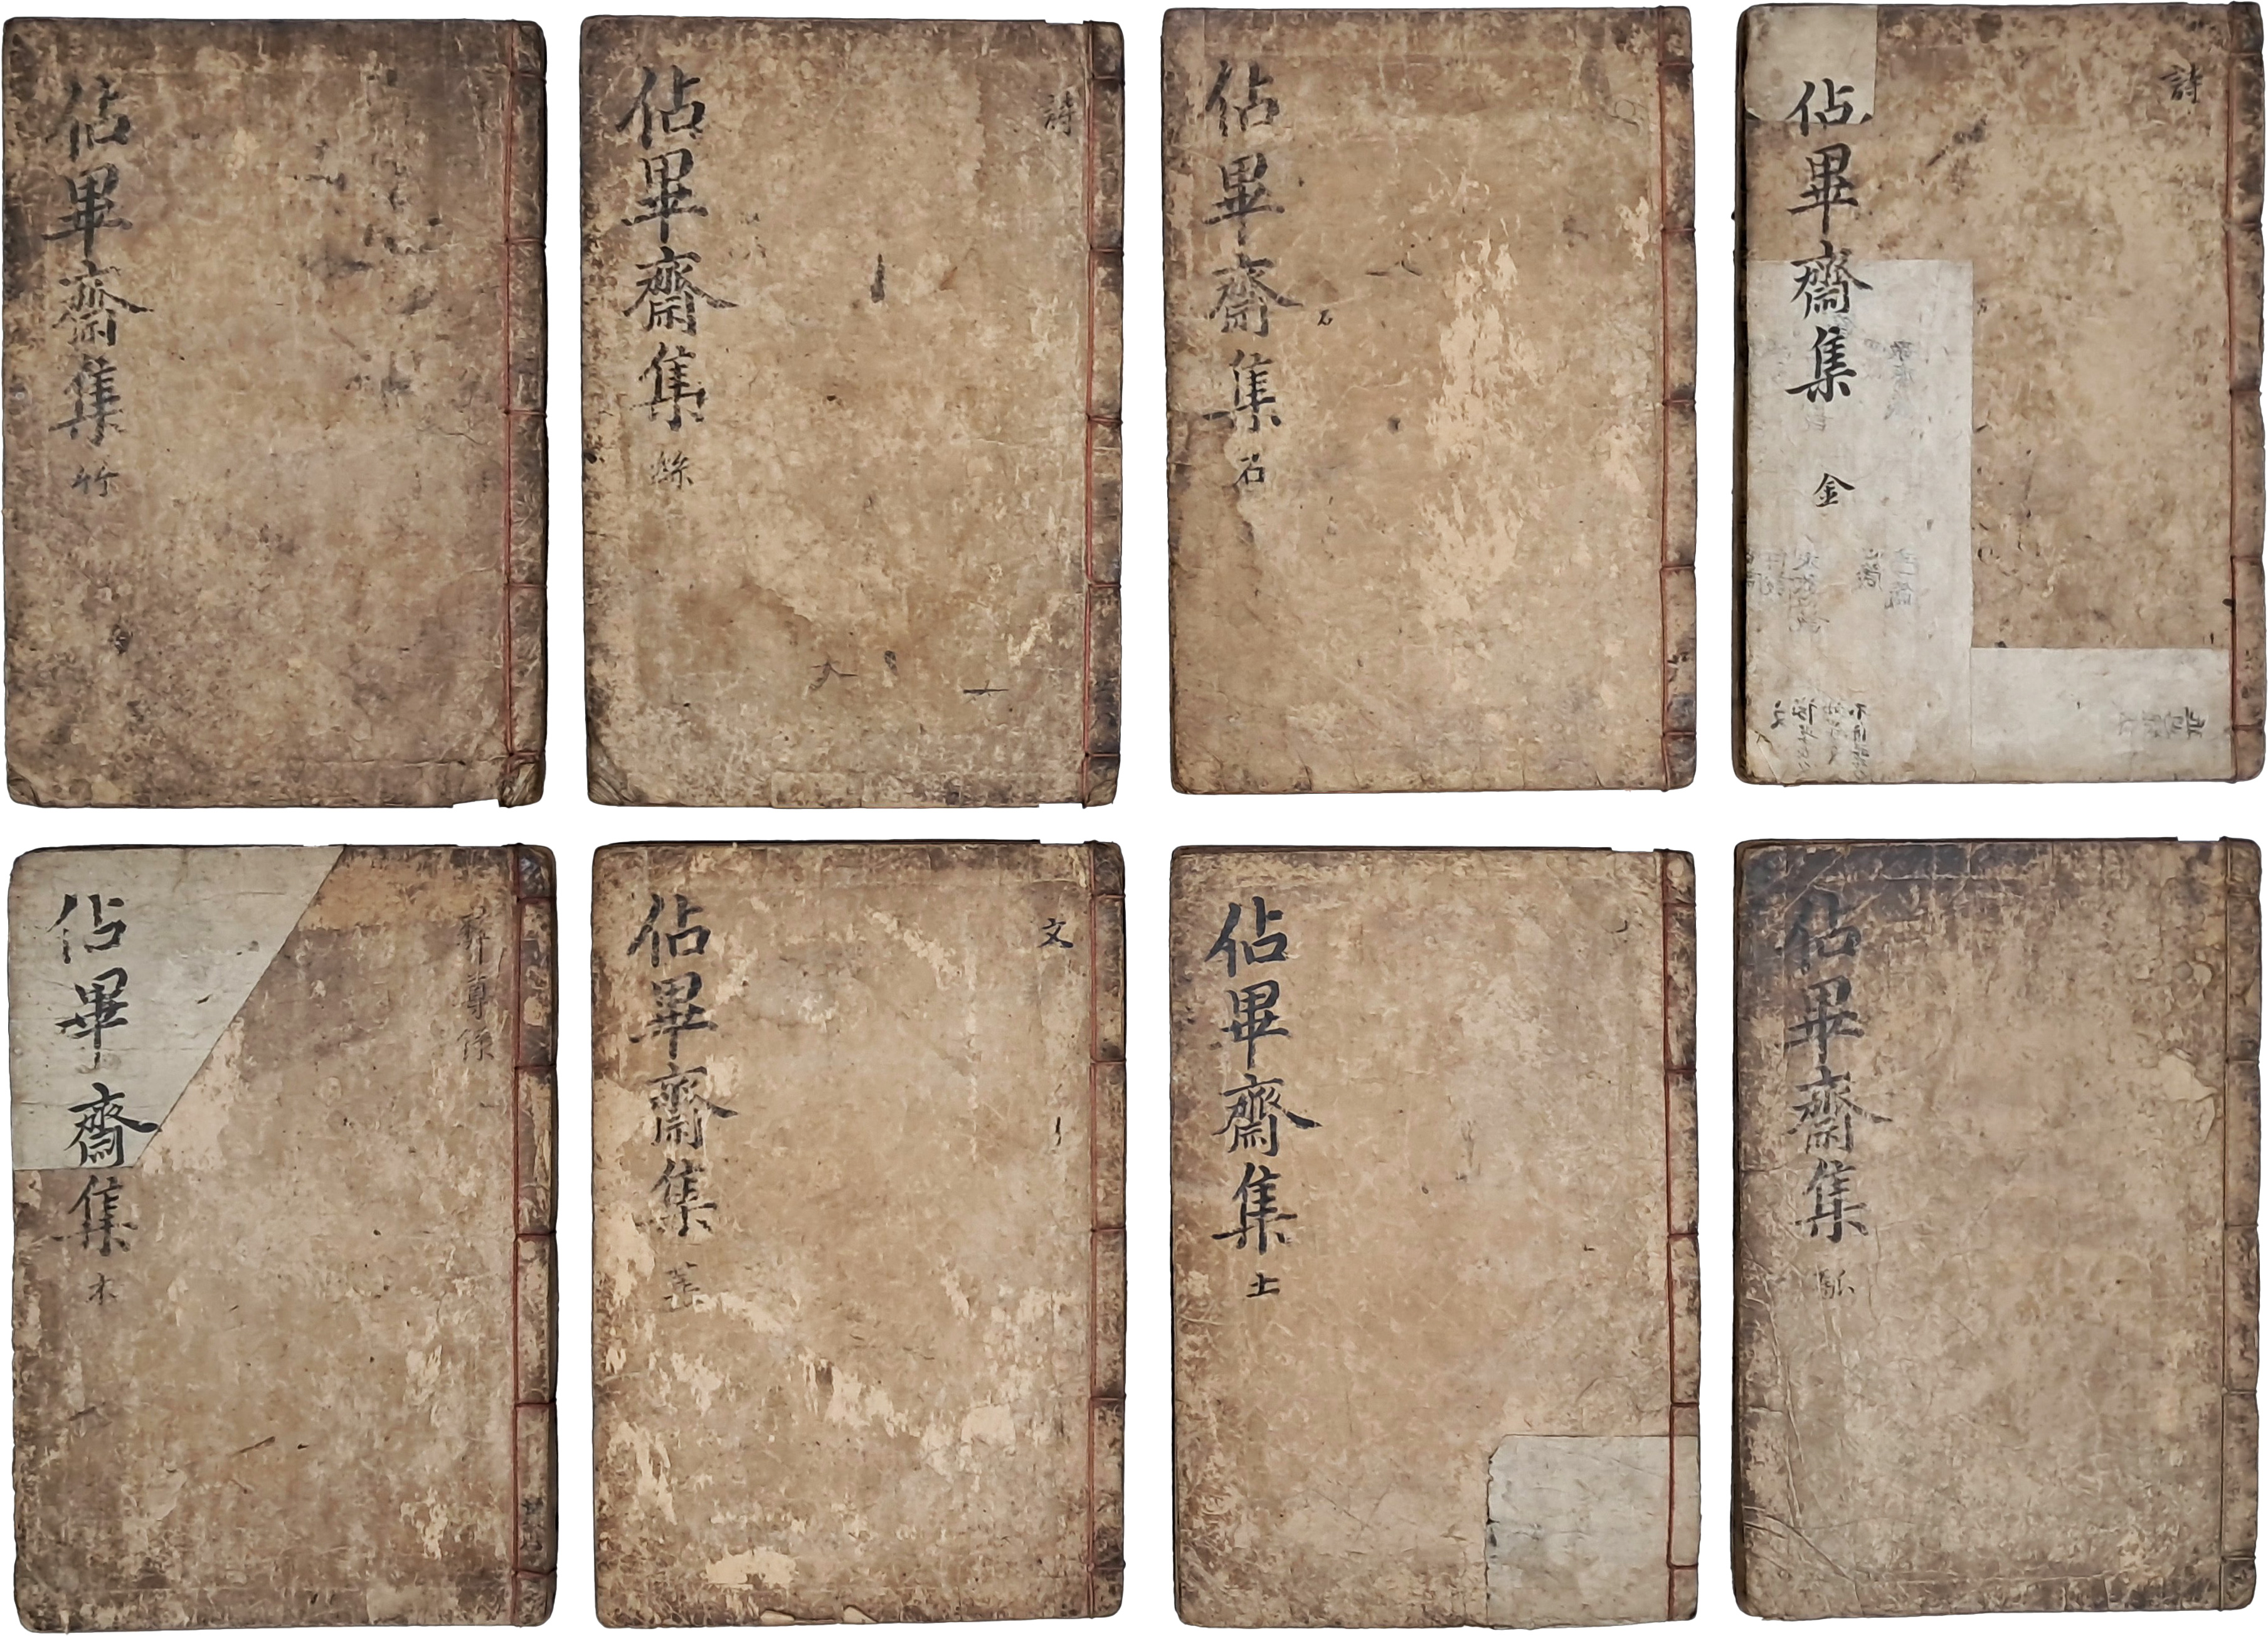 詩
佔畢齋集 金
佔畢齋集 石
石
詩
佔畢齋集 絲
佔畢齋集 竹
佔畢齋集 匏
佔畢齋集 土
文
佔畢齋集 革
佔畢齋集 木